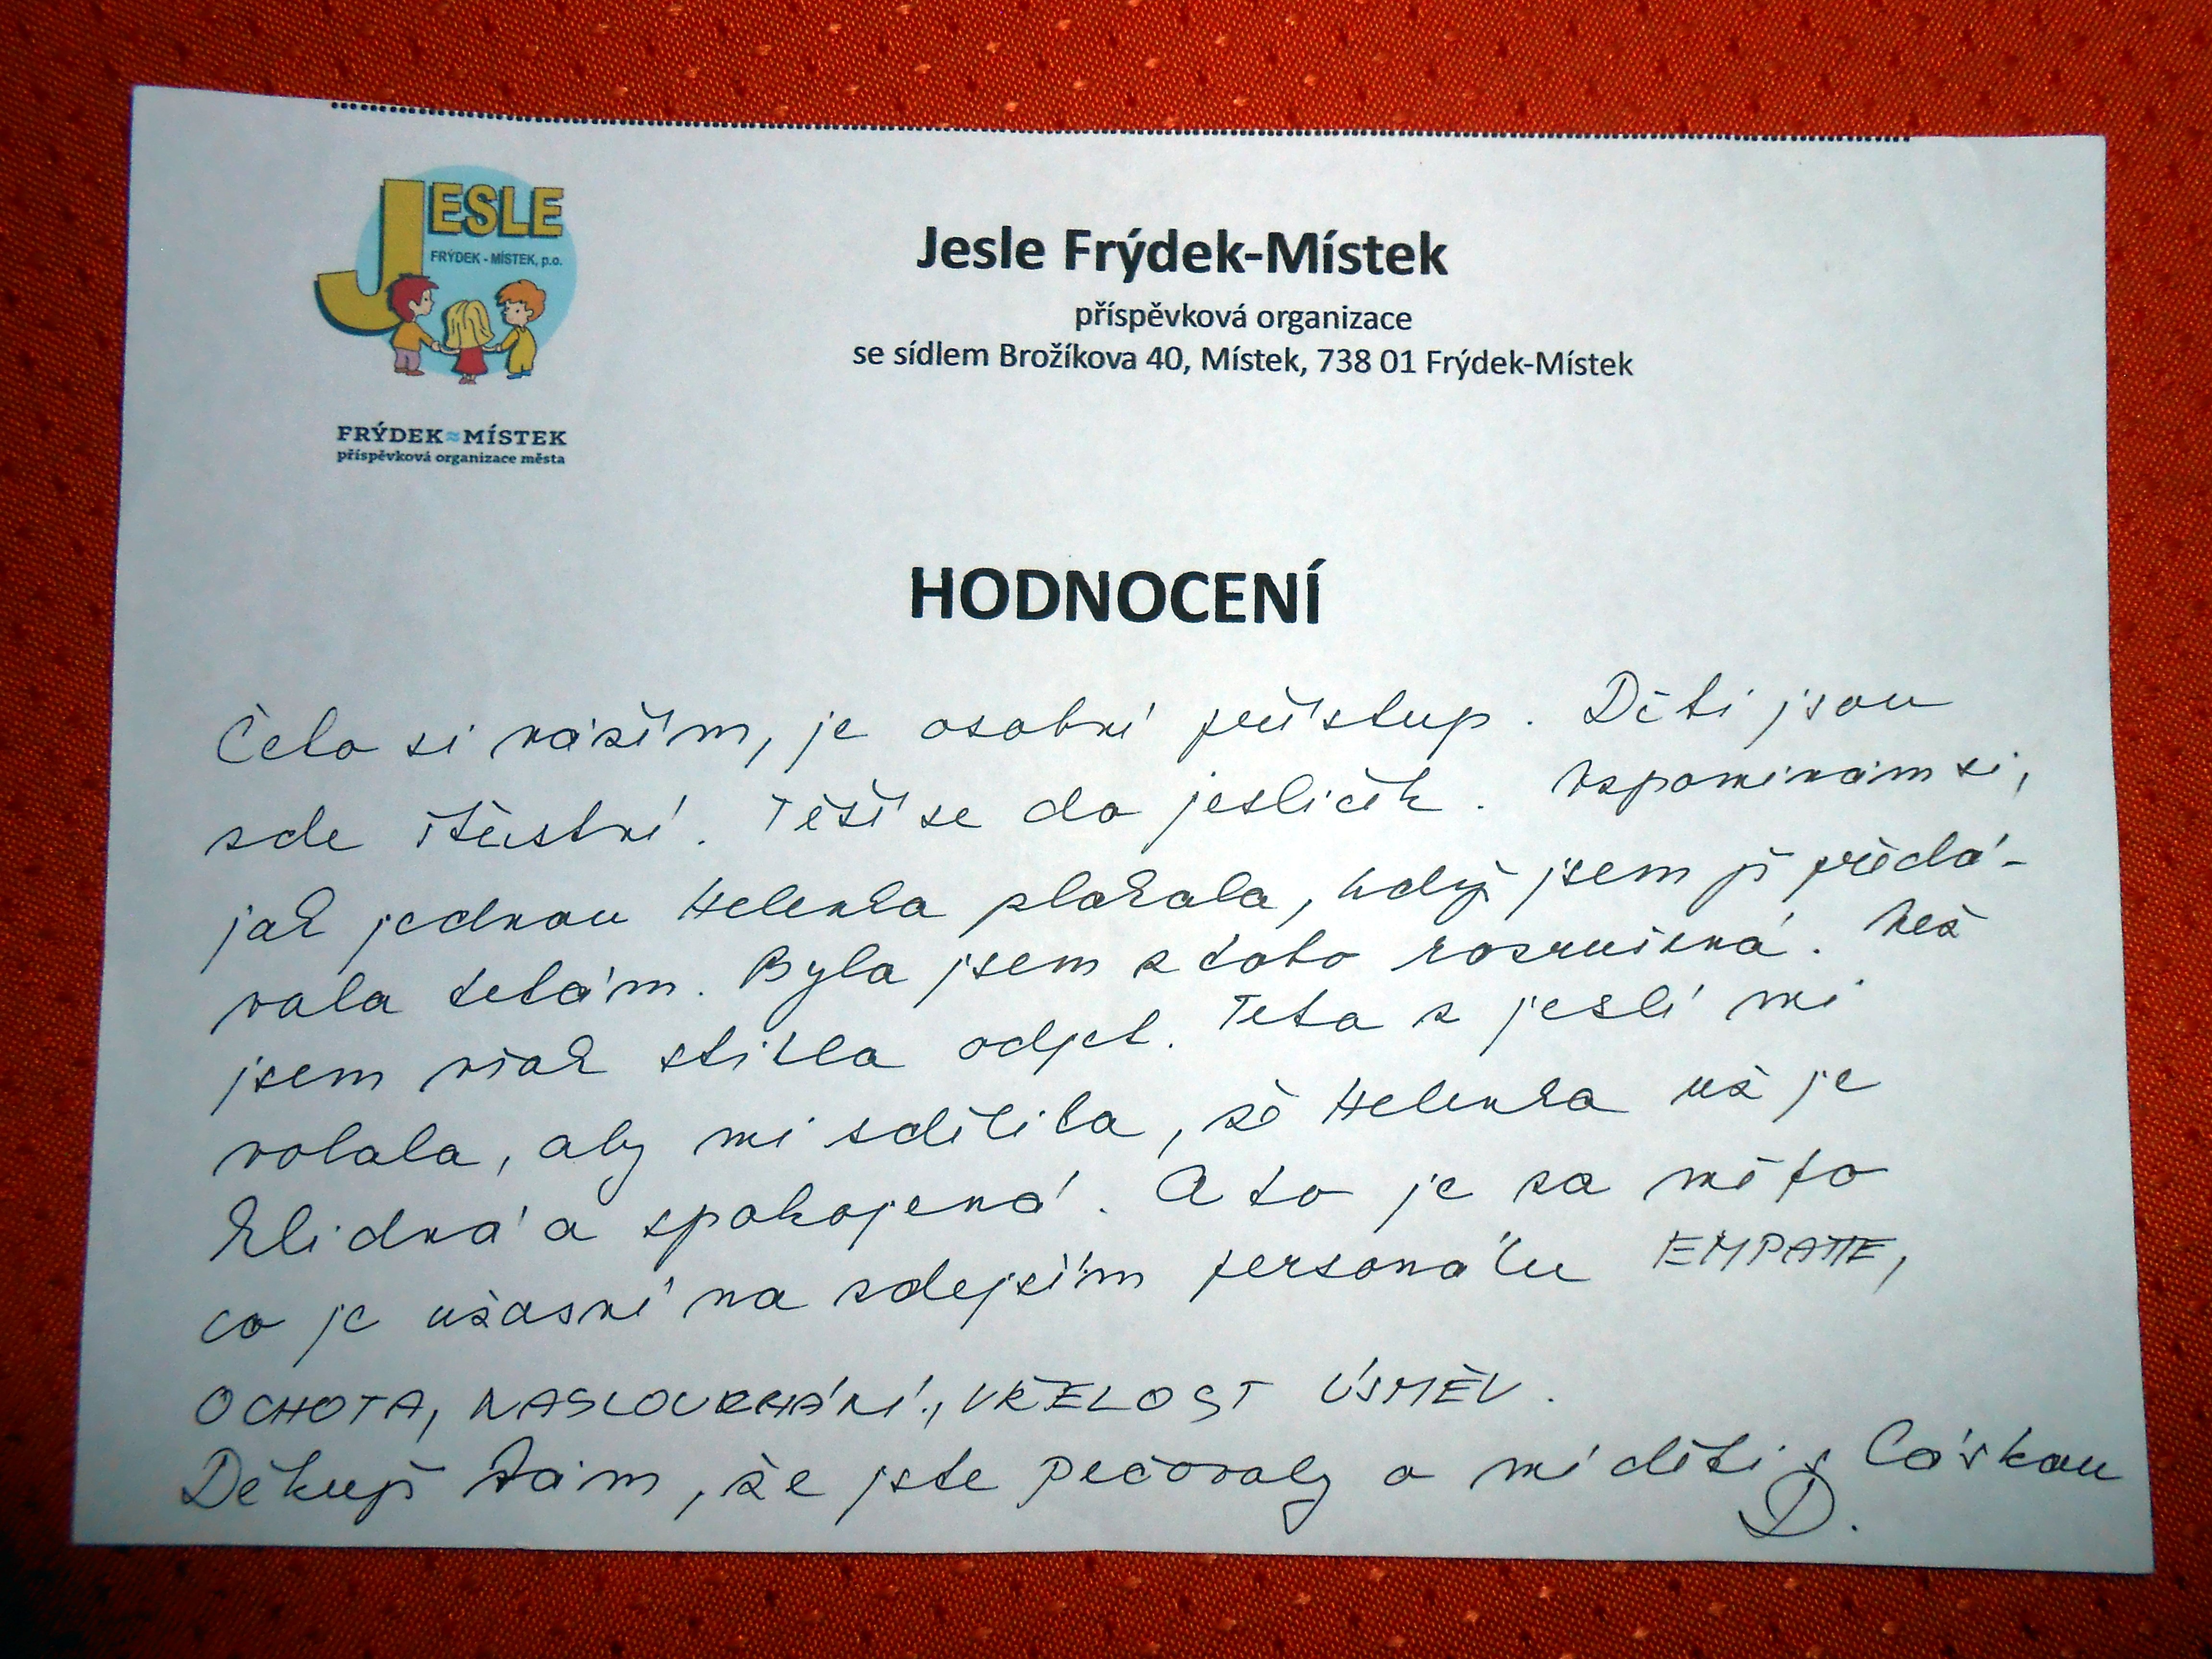 JESLE
FRÝDEK - MÍSTEK, p.o.
FRÝDEK≈MÍSTEK
příspěvková organizace města
Jesle Frýdek-Místek
příspěvková organizace
se sídlem Brožíkova 40, Místek, 738 01 Frýdek-Místek
HODNOCENÍ
Čeho si vážím, je osobní přístup. Děti jsou
zde šťastní. Těší se do jesliček. Vzpomínám si,
jak jednou Helenka plakala, když jsem ji předá-
vala tetám. Byla jsem z toho rozrušená. Než
jsem však stihla odjet. Teta z jeslí mi
volala, aby mi sdělila, že Helenka už je
klidná a spokojená. A to je za mě to
co je užasné na zdejším personálu EMPATIE,
OCHOTA, NASLOUCHÁNÍ, VŘELOST ÚSMĚV.
Děkuji Vám, že jste pečovaly o mé děti s láskou
D.